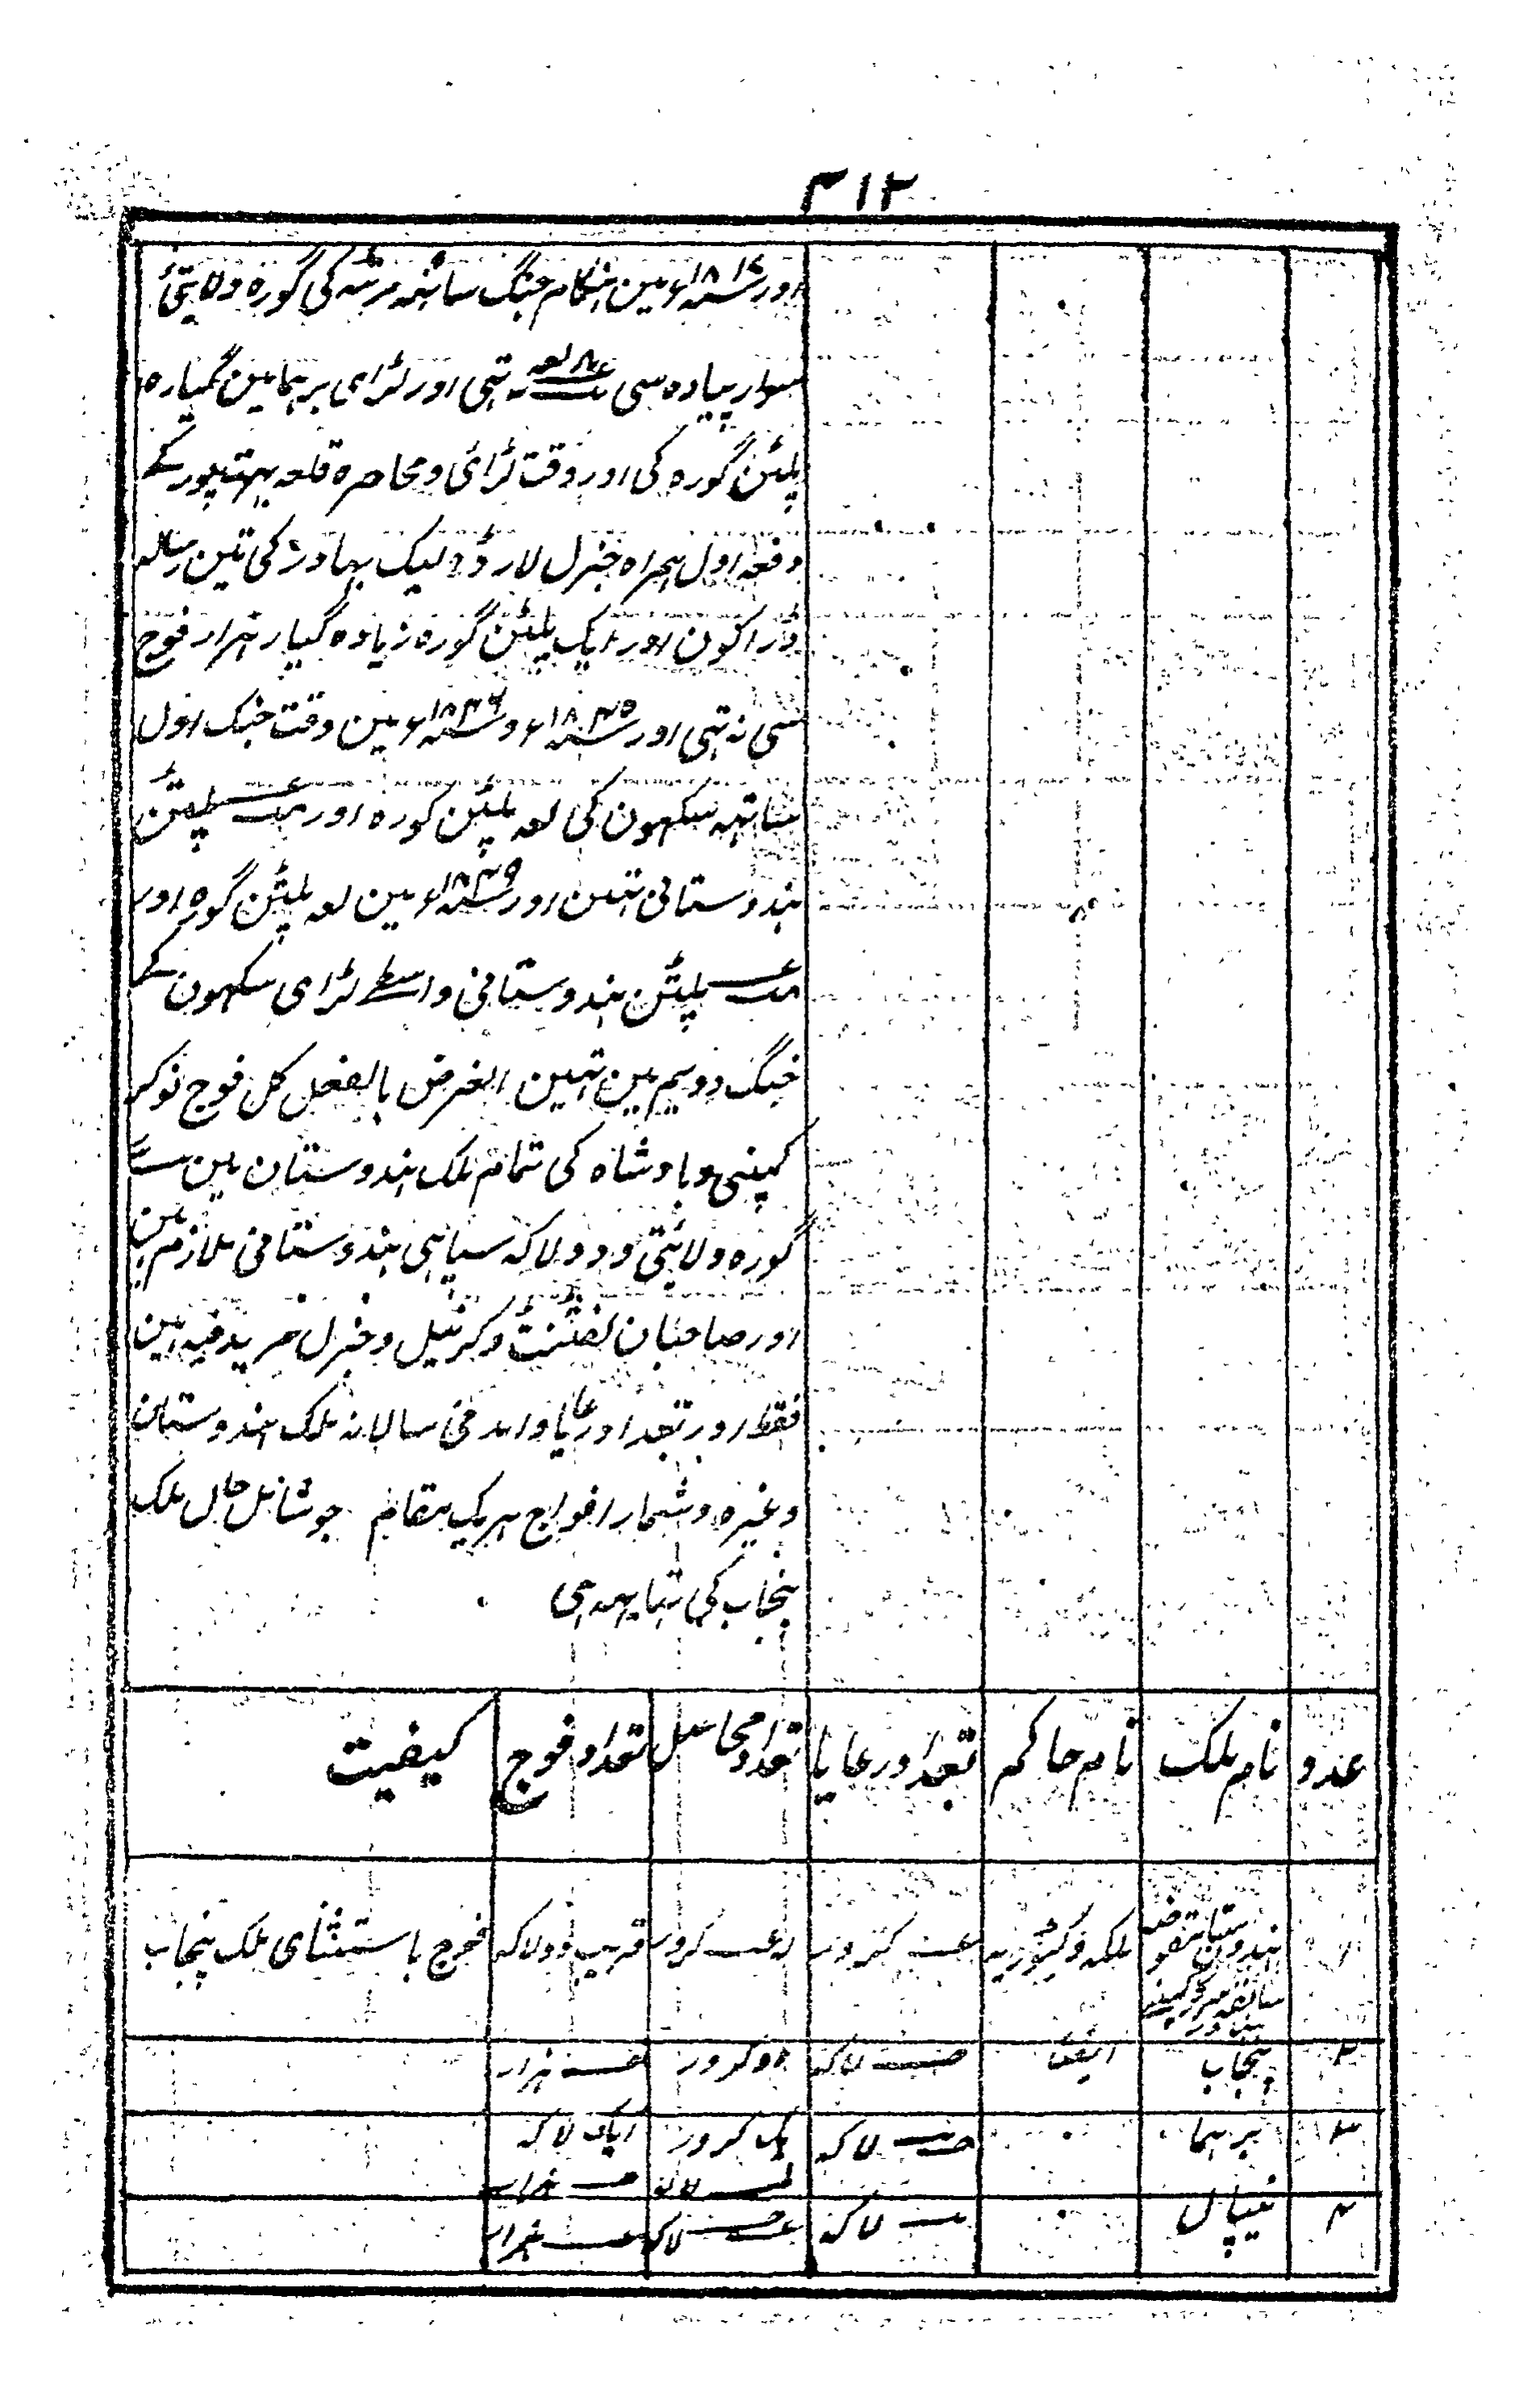 ۳۱۲
اور سنہ ۱۸۱۷ء مین ہنگام جنگ ساتہہ مرہٹہ کی گورہ ولایتئ
سوار پیادہ سی نہ تہی اور لڑای برہما مین گیارہ
پلٹن گورہ کی اور وقت لڑائی و محاصرہ قلعہ بہرتپور کے
دفعہ اول ہمراہ جنرل لارڈ لیک بہادر کی تین رسالہ
ڈراکون اور ایک پلٹن گورہ زیادہ گیارہزار فوج
سی نہ تہی اور سنہ ۱۸۴۵ء و سنہ ۱۸۴۶ء مین وقت جنک اول
ساتہہ سکہون کی لعہ پلٹن کورہ اور پلٹن
ہندوستانی تہین اور سنہ ۱۸۴۹ء مین لعہ پلٹن گورہ اور
پلٹن ہندوستانی واسطے لڑای سکہون کے
جنگ دویم مین تہین الغرض بالفعل کل فوج نوکر
کمپنی و بادشاہ کی تمام ملک ہندوستان مین
گورہ ولائیتی و دو لاکہ سپاہی ہندوستانی ملازم ہین
اور صاحبان لفٹنٹ و کرنیل و جنرل مزید فیہ ہین
فقط اور تعداد رعایا و امدنی سالانہ ملک ہندوستان
وغیرہ و شمار افواج ہریک مقام جو شامل حال ملک
پنجاب کی تہا یہہ ہی
عدد نام ملک نام حاکم تعداد رعایا تعداد محاصل تعداد فوج کیفیت
۱ ہندوستان مقبوضہ سرکار کمپنی بہادر ملکہ وکٹوریہ کرور کرور قریب دو لاکہ فوج باستثنای ملک پنجاب
۲ پنجاب ایضاً لاکہ دو کرور ہزار
۳ برہما ۰ لاکہ یک کرور لاکہ ایک لاکہ ہزار
۴ نیپال ۰ لاکہ لاکہ ہزار